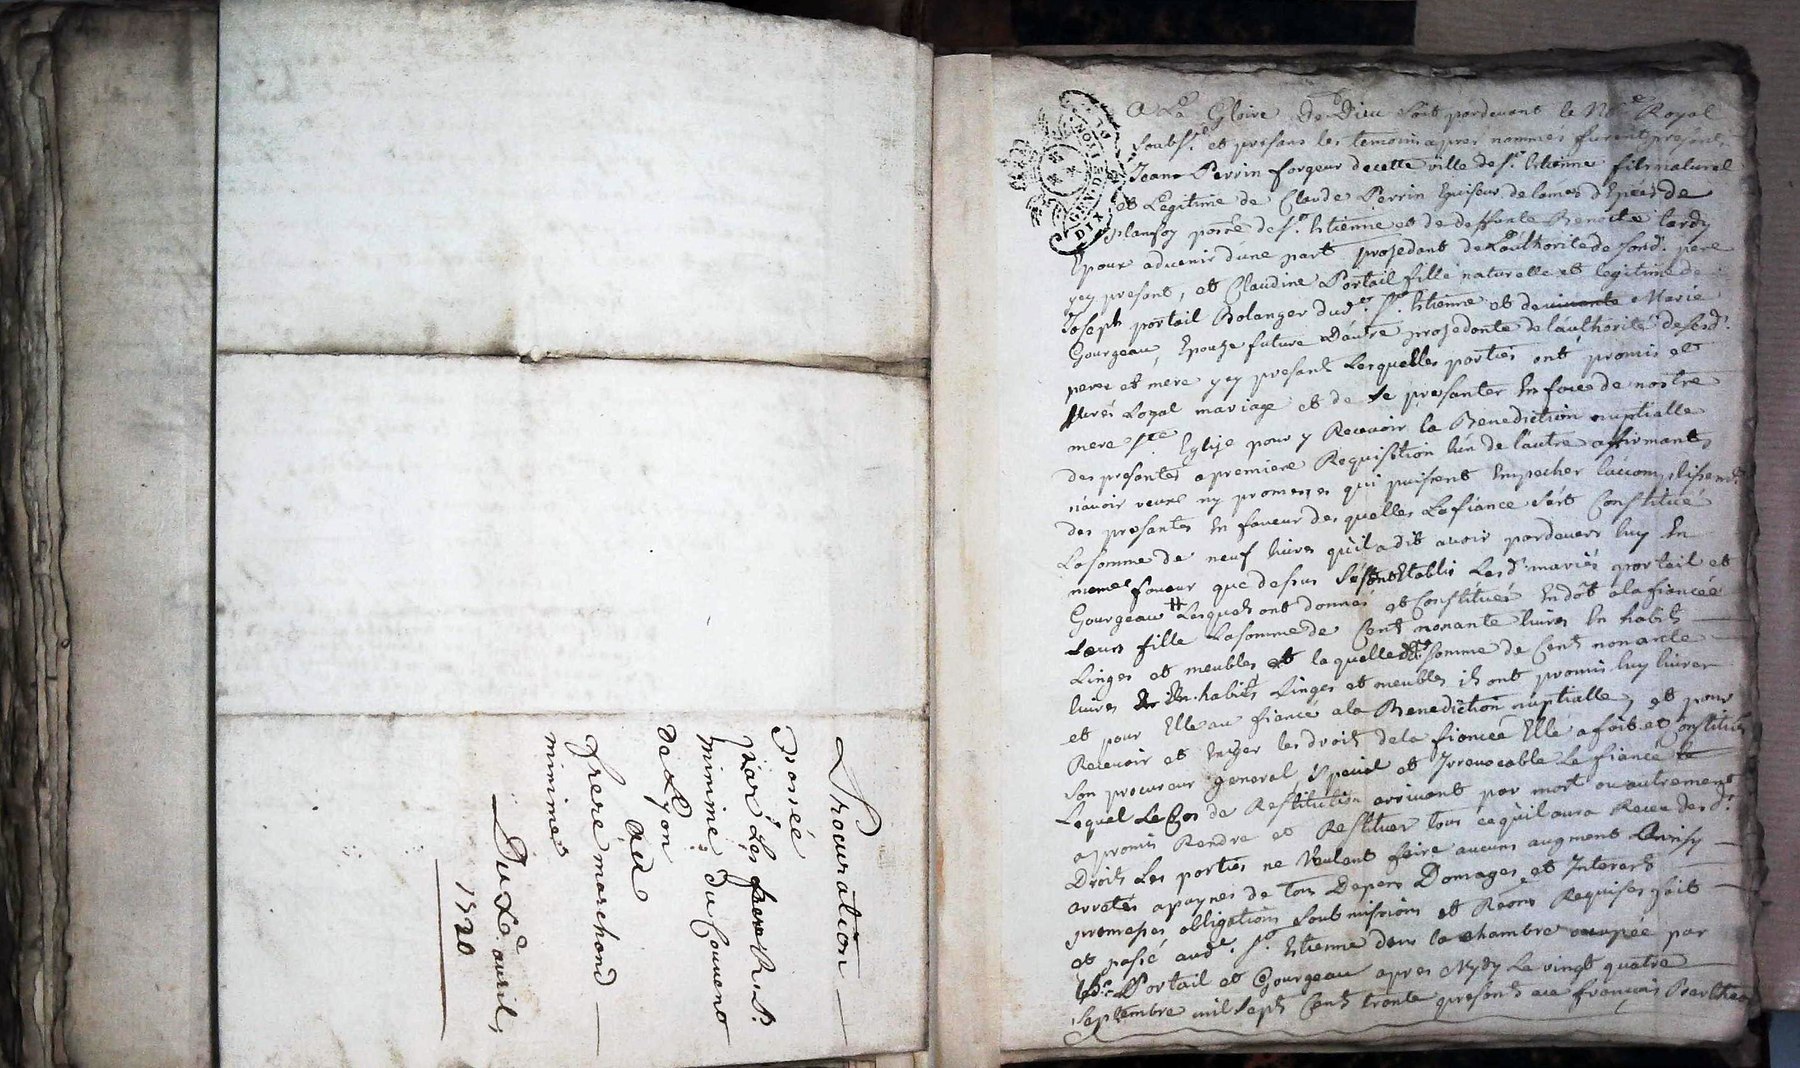 Procuration
Passée
par Les R. P.
Minimes Du Couvent
de Lyon
au
frere marchand
minimes
Du Le avril,
1720
GEN DE LION
DIX
A La Gloire de Dieu soit pardevant le Nore Royal
soubs.é et presans les temoins apres nommés furent presents
Jean Perrin forgeur decette ville de st. Etienne fils naturel
et Legitime de Claude Perrin Eguiseur de lames d'Epées de
planfoy parre. de st. Etienne et de deffunte Benoite tardy
Epoux advenir d'une part projedant de l'authorité de sond. pere
yey present, et Claudine Portail fille naturelle et legitime de
Joseph portail Bolanger dud. st. Etienne et de vivante Marie
Gourgeau, Epouze future D'autre projedante de l'authorité de sesd.
pere et mere yey presents Lesquelles parties ont promis et
jurés Loyal mariage et de se presanter En face de nostre
mere ste. Eglize pour y Recevoir la Benediction nuptialle
des presantes a premiere Requisition l'un de l'autre affirmants
n'avoir veuxe ny promesses qui puissent Empecher l'accomplissemt.
des presantes En faveur des quelles Lafiance sest Constitué
La somme de neuf livres qu'il a dit avoir pardevers luy En
meme faveur que dessus se sont Etablis Lesd. mariés portail et
Gourgeau # Lesquels ont donnés et Constitués En dôt a la fiancée
Leurs fille La somme de Cent nonante livres En habits
Linges et meubles et la quelle somme de Cent nonante
livres En habits Linges et meubles ils ont promis luy livrer
et pour Elle au fiancé a la Benediction nuptialle, et pour
Recevoir et Exiger les droits de la fiancée Elle a fait et Constitué
son procureur general special et Irrevocable Le fiancé
Lequel Le Cas de Restitution arrivant par mort ou autrement
a promis Rendre et Restituer tous ce qu'il aura Receu desd.
Droits Les parties ne Veulent faire aucuns augment Ainsy
arretés a paynes de tous Depens Domages et Interests
promesses obligations soubmissions et Renons Requises fait
et passé aud. st. Etienne dans la chambre occupée par
lesd. Portail et Gourgeau apres Mydy Le vingt quatre
septembre mil sept Cents trente presents sieur françois Berthea